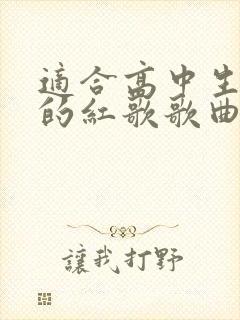 適合高中生
的紅歌歌曲
讓我打野